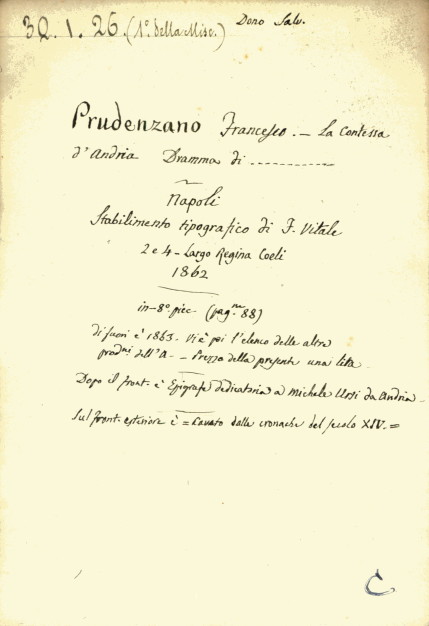 32.1.26. (1º. della Misc.) Dono Salv.
Prudenzano Francesco. — La Contessa
d'Andria Dramma di ------------
Napoli
Stabilimento tipografico di F. Vitale
2 e 4 - Largo Regina Coeli
1862
in-8º picc. (pagne 88)
di fuori è 1863. Vi è poi l'elenco delle altre
prodni dell'A — Prezzo della presente una lira —
Dopo il front. è Epigrafe dedicatoria a Michele Ursi da Andria —
Sul front. esteriore è = Cavato dalle cronache del secolo XIV. =
C